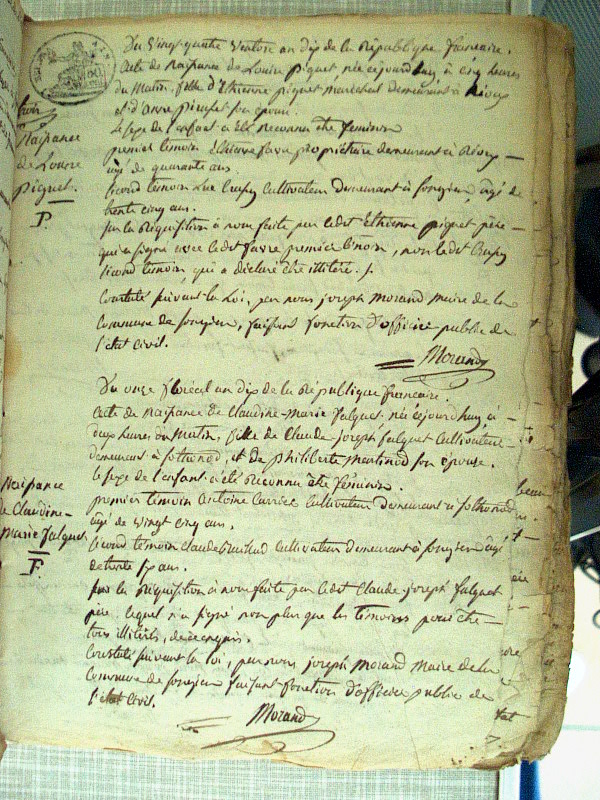 Du vingt quatre ventose an dix de la République francaise.
Acte de Naissance de Louise piguet née cejourdhuy à cinq heures
du Matin, fille d'Etienne piguet maréchal demeurant à
et d'anne son épouse.
Le sexe de l'enfant a été reconnu être feminin
premier temoin Ethienne favre propriétaire demeurant à —
agé de quarante ans.
second temoin Luc Cultivateur demeurant à songieu, agé de
trente cinq ans.
sur la Réquisition à nous faite par ledit Ethienne piguet père —
qui a signé avec ledit favre premier temoin, non ledit
second temoin qui a déclaré être illitéré ./.
Constaté suivant la Loi, par nous joseph Morand Maire de la
Commune de songieu, faisant fonction d'officier public de
l'état civil.
Morand
Naissance
de Louise
Piguet.
F.
Du onze floréal an dix de la République francaise.
Acte de Naissance de Claudine-Marie falquet née cejourdhuy à
deux heures du Matin, fille de Claude joseph falquet Cultivateur
demeurant à sothonod, et de philiberte Martinod son épouse.
le sexe de l'enfant a été Reconnu être feminin.
premier temoin antoine Carrier Cultivateur demeurant a sothonod
agé de vingt cinq ans.
second temoin Claude Cultivateur demeurant à songieu agé
de trente ans.
sur la Réquisition à nous faite par ledit Claude joseph falquet
père lequel n'a signé non plus que les temoins pour être —
tous illitérés, de ce enquis.
Constaté suivant la loi, par nous joseph Morand Maire de la
Commune de songieu faisant fonction d'officier public de
l'état civil.
Morand
Naissance
de Claudine-
Marie falquet
F.